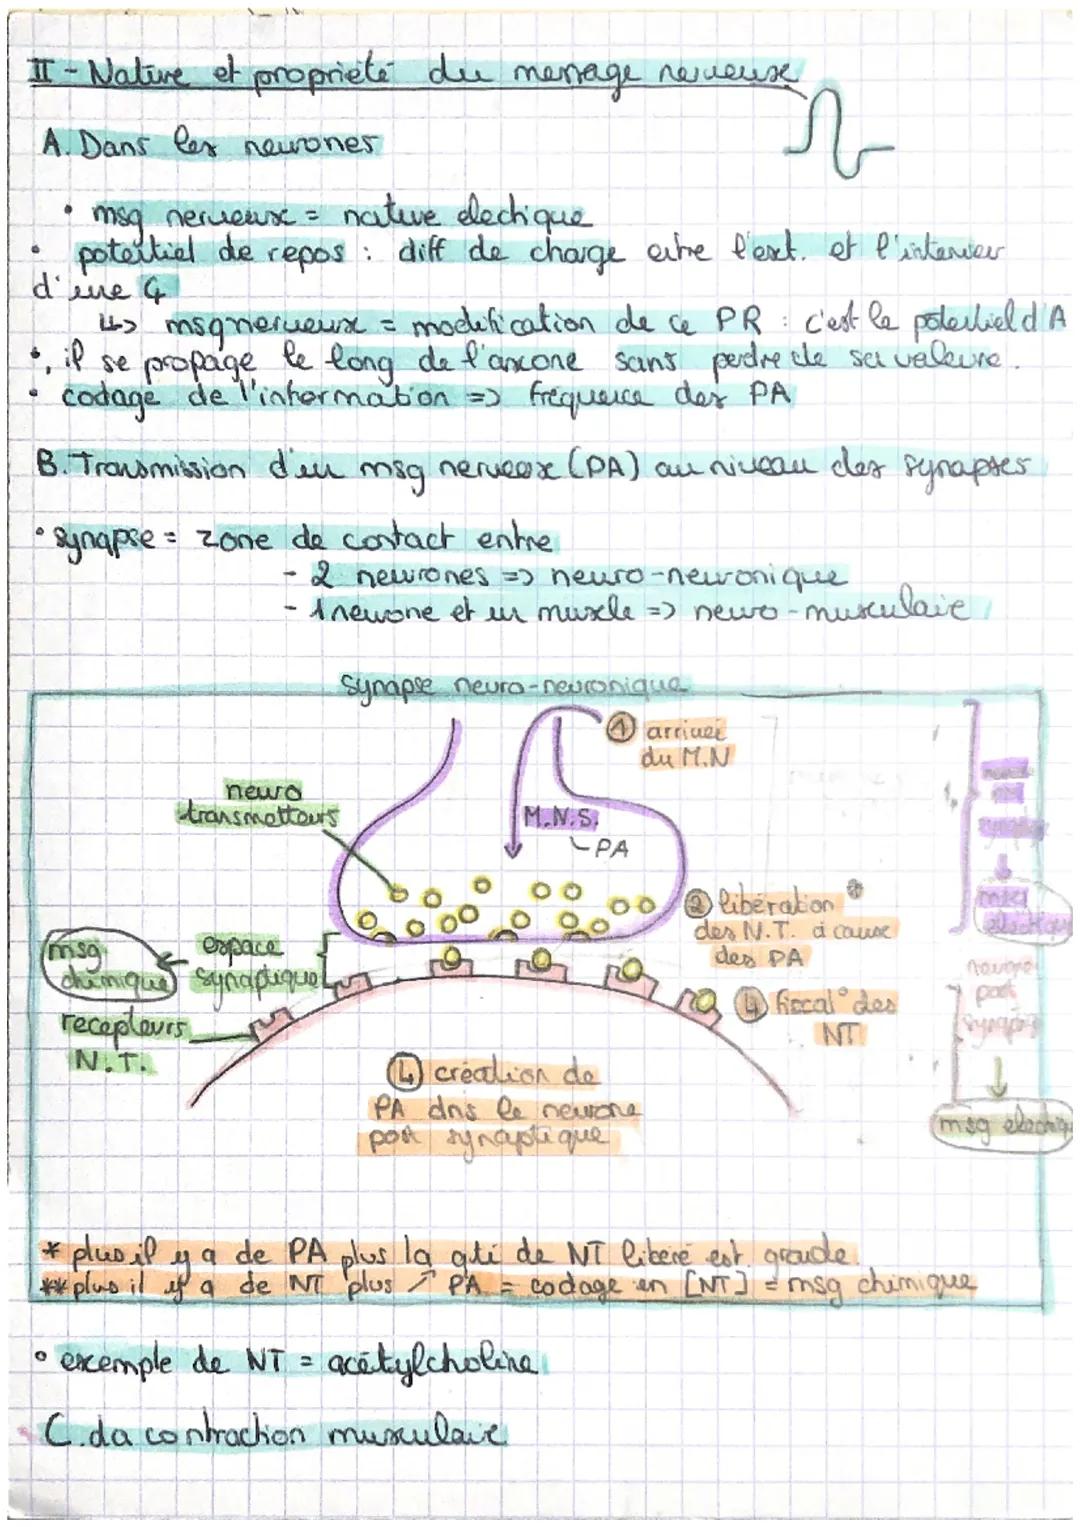 II - Nature et propriété du message nerveux
A. Dans les neurones
• msg nerveux = nature electrique
• potentiel de repos : diff de charge entre l'ext. et l'interieur
d'une
↳> msg nerveux = modification de ce PR : c'est le potentiel d'A
•, il se propage le long de l'axone sans perdre de sa valeure.
• codage de l'information => fréquence des PA
B. Transmission d'un msg nerveux (PA) au niveau des synapses
• synapse = zone de contact entre
- 2 neurones => neuro-neuronique
- 1 neurone et un muscle => neuro-musculaire
synapse neuro-neuronique
① arrivée
du M.N
neuro
transmetteurs
M.N.S.
PA
② libération *
des N.T. à cause
des PA
msg
chimique
espace
synaptique
recepteurs
N.T.
④ fixcal° des
NT
④ création de
PA dns le neurone
post synaptique
msg
electrique
neurone
post
synap
msg electriq
* plus il y a de PA plus la qti de NT libéré est grande.
** plus il y a de NT plus ↗ PA = codage en [NT] = msg chimique
• exemple de NT = acétylcholine
C. La contraction musculaire